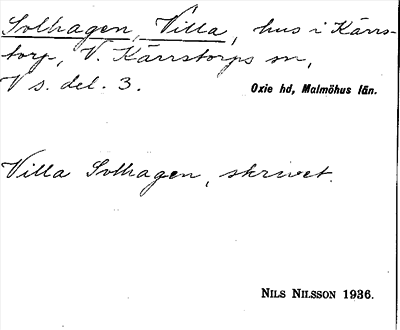 Solhagen, Villa, hus i Kärrs-
torp, V. Kärrstorps sn,
V s. del. 3.
Oxie hd, Malmöhus län.
Villa Solhagen, skrivet.
NILS NILSSON 1936.